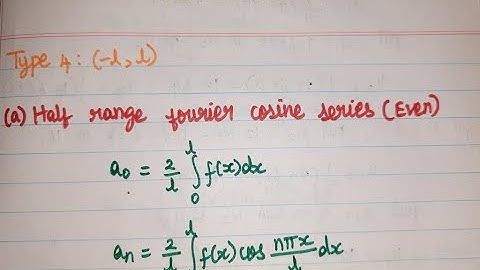 Type 4 : (-l, l)
(a) Half range fourier cosine series (Even)
a₀ = 2/l ∫₀ˡ f(x)dx
aₙ = 2/l ∫ˡ f(x) cos nπx/l dx.